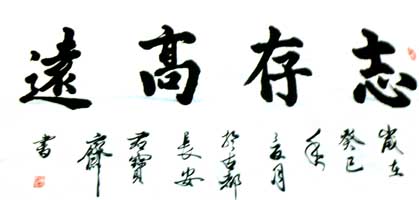 志存高遠
歲在
癸巳
年
夏月
於古都
長安
寶
齋
書